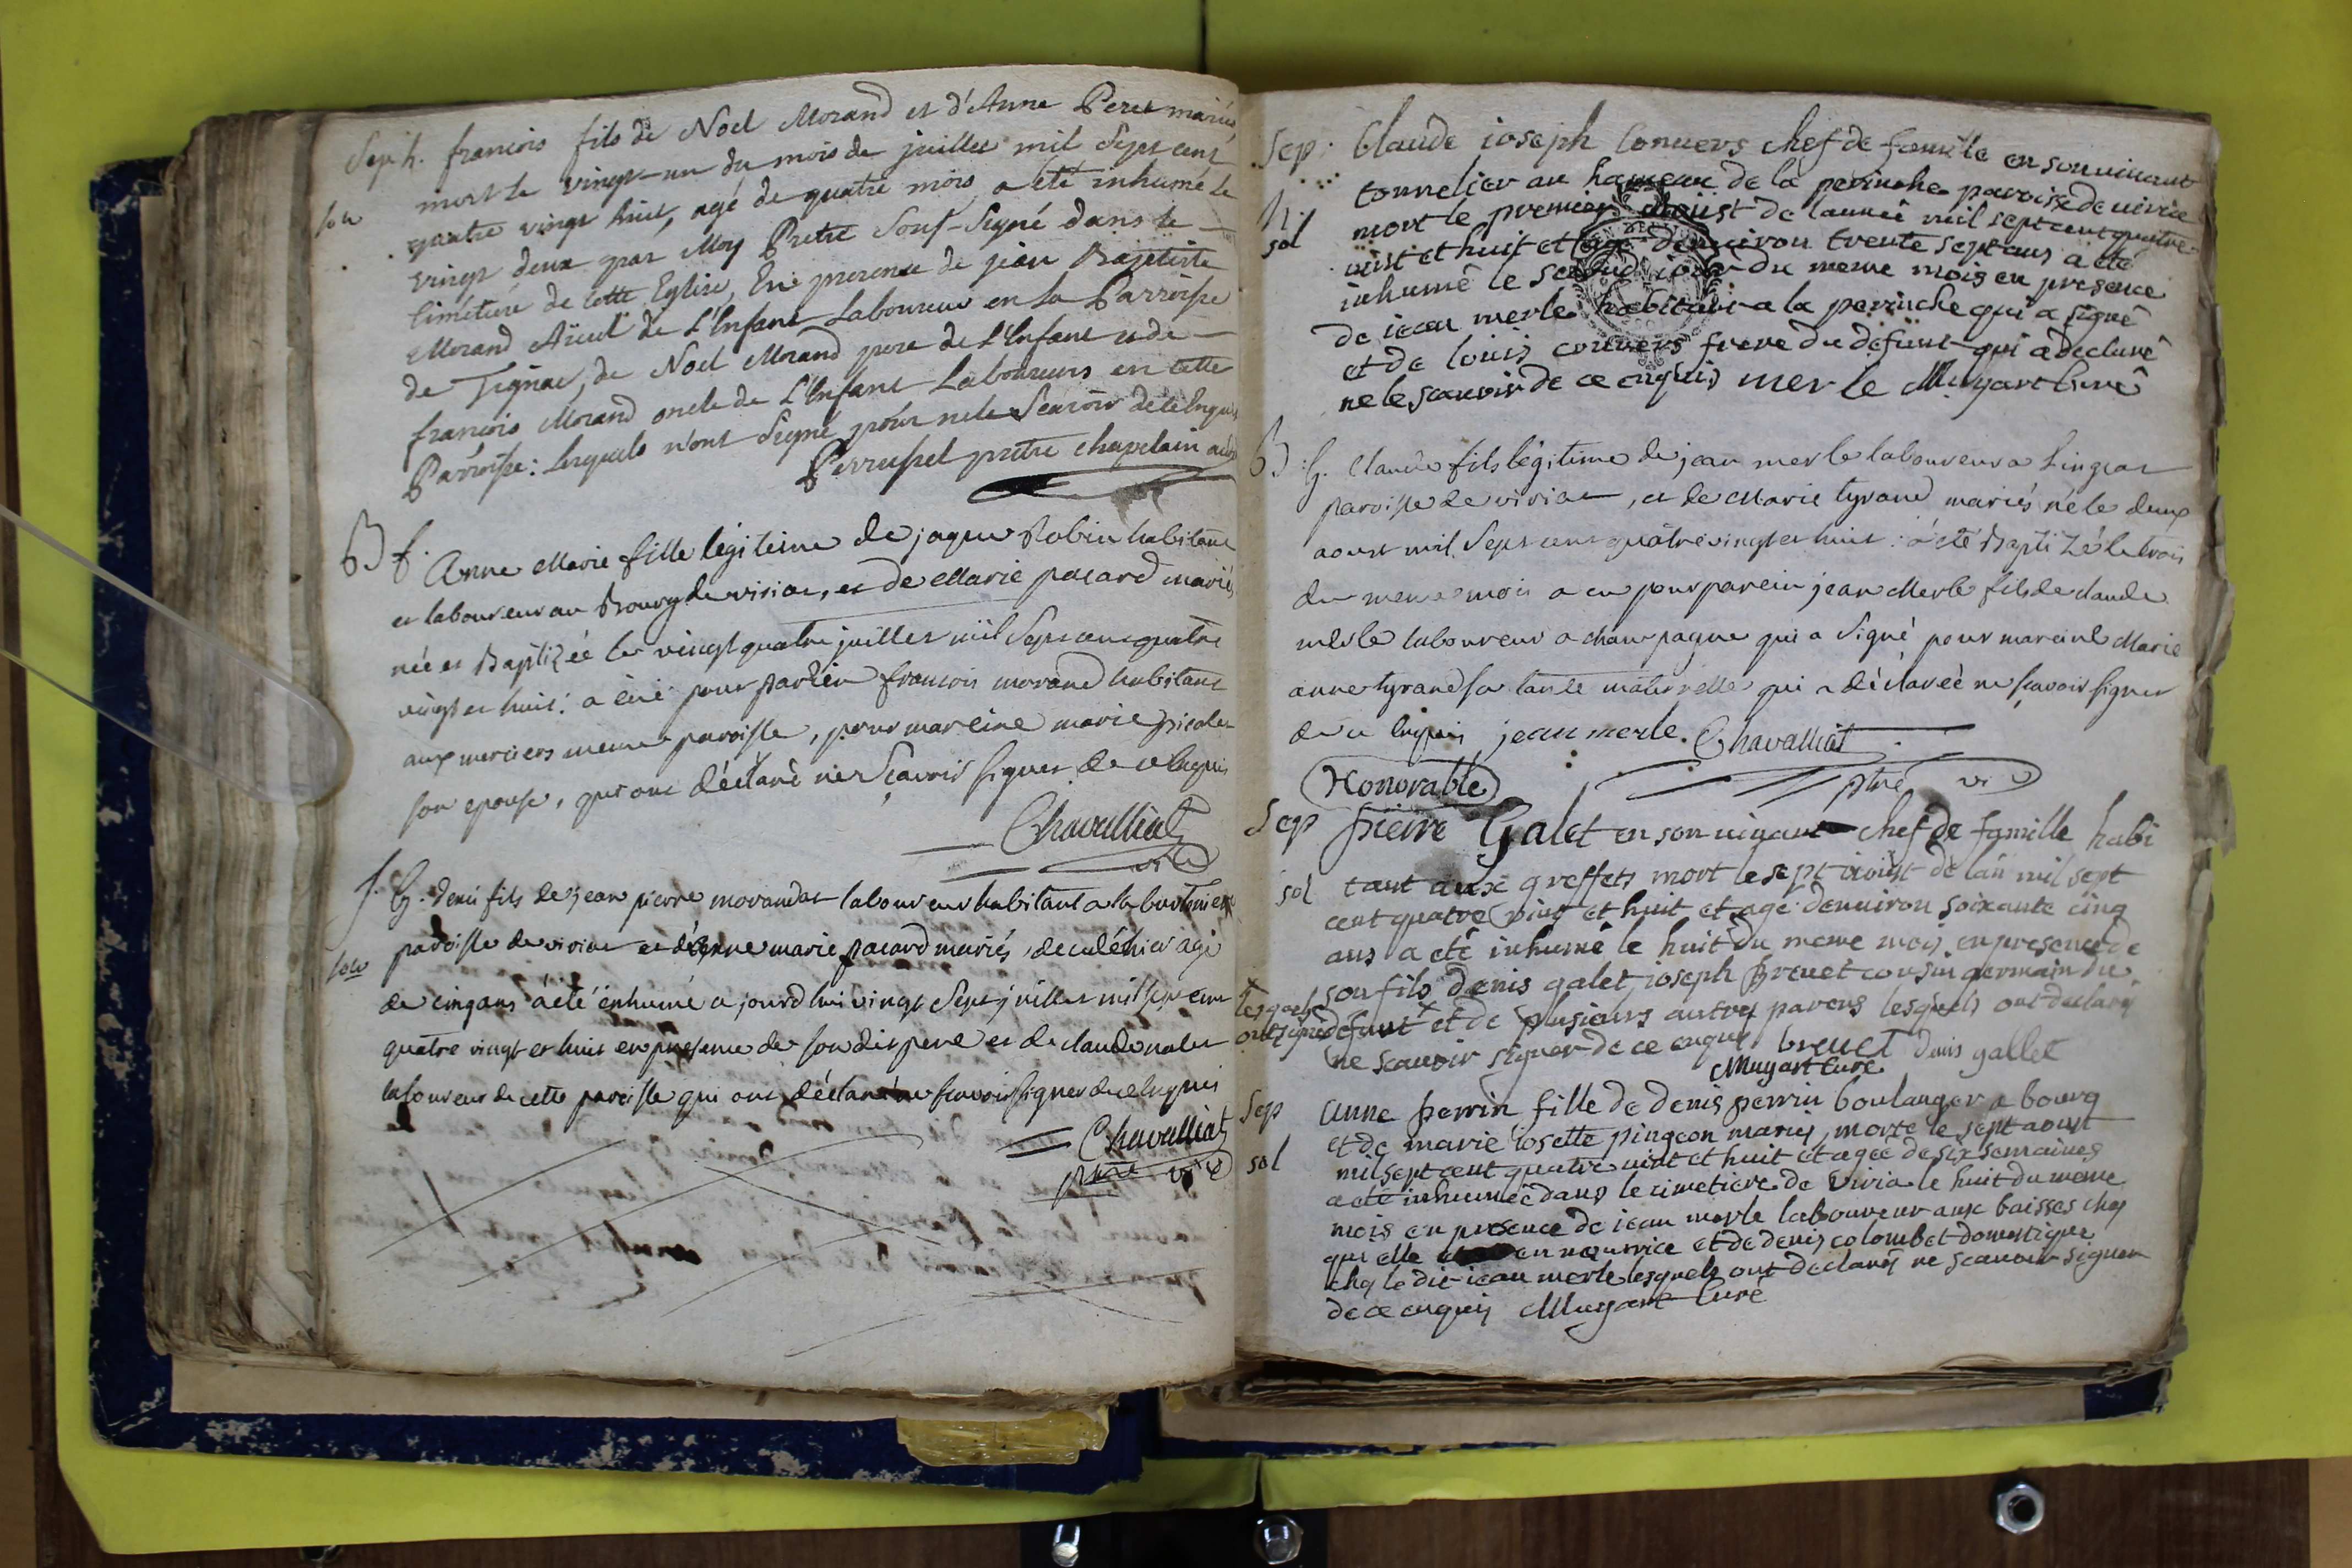 Sep h. francois fils de Noel Morand et d'Anne Peret mariés,
mort le vingt-un du mois de juillet mil Sept cent
solv quatre vingt huit, agé de quatre mois, a été inhumé le
vingt deux par Moy Pretre Sous-Signé dans le
Cimétiere de Cette Eglise, En presence de jean Baptiste
Morand Aïeul de L'Enfant Laboureur en la Parroisse
de Tignac, de Noel Morand pere de L'Enfant et de
francois Morand oncle de L'Enfant Laboureurs en cette
Parroisse: lesquels n'ont Signé pour ne le Scavoir de ce Enquis
Perrusset prêtre chapelain
B f. Anne Marie fille légiteime de jaque Robin habitant
et laboureur au Bourg de viriac, et de Marie pacard mariés
née et Baptizée le vingt quatre juillet mil Sept cent quatre
vingt et huit: a eüe pour parrein francois morand habitant
aux merciers meme paroisse, pour mareine marie picolet
son epouse, qui ont déclaré ne Sçavoir signer de ce Enquis
Chavalliat
vic
S. G. denis fils de jean pierre morandat laboureur habitant a la
paroisse de viriac et d'Anne marie pacard mariés, decedé hier agé
solv de cinq ans a été énhumé a jourd hui vingt Sept juillet mil sept cent
quatre vingt et huit en presence de son dit pere et de claude
laboureur de cette paroisse qui ont déclaré ne scavoir signer de ce enquis
Chavalliat
ptre vic
Sep: Claude ioseph Convers chef de famille en son vivant
h. tonnelier au hameau de la perinche paroisse de viriac
sol mort le premier aoust de lannée mil sept cent quatre
vint et huit et agé denviron trente sept ans a été
inhumé le second iour du meme mois en presence
de iean merle habitant a la perinche qui a signé
et de loüis convers frere du défunt qui a declaré
ne le scavoir de ce enquis merle Muyart Curé
B: G. Claude fils légitime de jean merle laboureur a
paroisse de viriac, et de Marie tyrand mariés né le deux
aoust mil Sept cent quâtre vingt et huit: a été Baptizé le trois
du meme mois a eu pour parein jean Merle fils de claude
merle laboureur a champagne qui a Signé, pour mareine Marie
anne tyrand sa tante maternelle qui a déclaréé ne sçavoir signer
de ce Enquis jean merle. Chavalliat
ptre vic
Honorable
Sep pierre Galet en son vivant chef de famille habi
sol tant aux greffets mort le sept aoust de lan mil sept
cent quatre vint et huit et agé denviron soixante cinq
ans a eté inhumé le huit du meme mois en presence de
son fils denis galet, ioseph Brevet cousin germain du
lesquels ont signé defunt et de plusieurs autres parens lesquels ont declaré
ne scavoir signer de ce enquis brevet denis gallet
Muyart Curé
Sep Anne perrin fille de denis perrin boulanger a bourg
et de marie iosette pingeon mariés, morte le sept aoust
sol mil sept cent quatre vint et huit et agée de six semaines
a eté inhumée dans le cimetiere de viria le huit du meme
mois en presence de iean merle laboureur aux baisses chez
qui elle en nourrice et de denis colombet domestique
chez le dit iean merle lesquels ont declaré ne scavoir signer
de ce enquis Muyart Curé